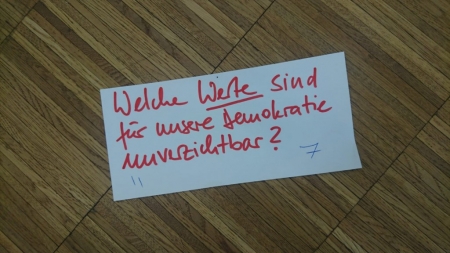 Welche Werte sind
für unsere Demokratie
unverzichtbar?
11 7